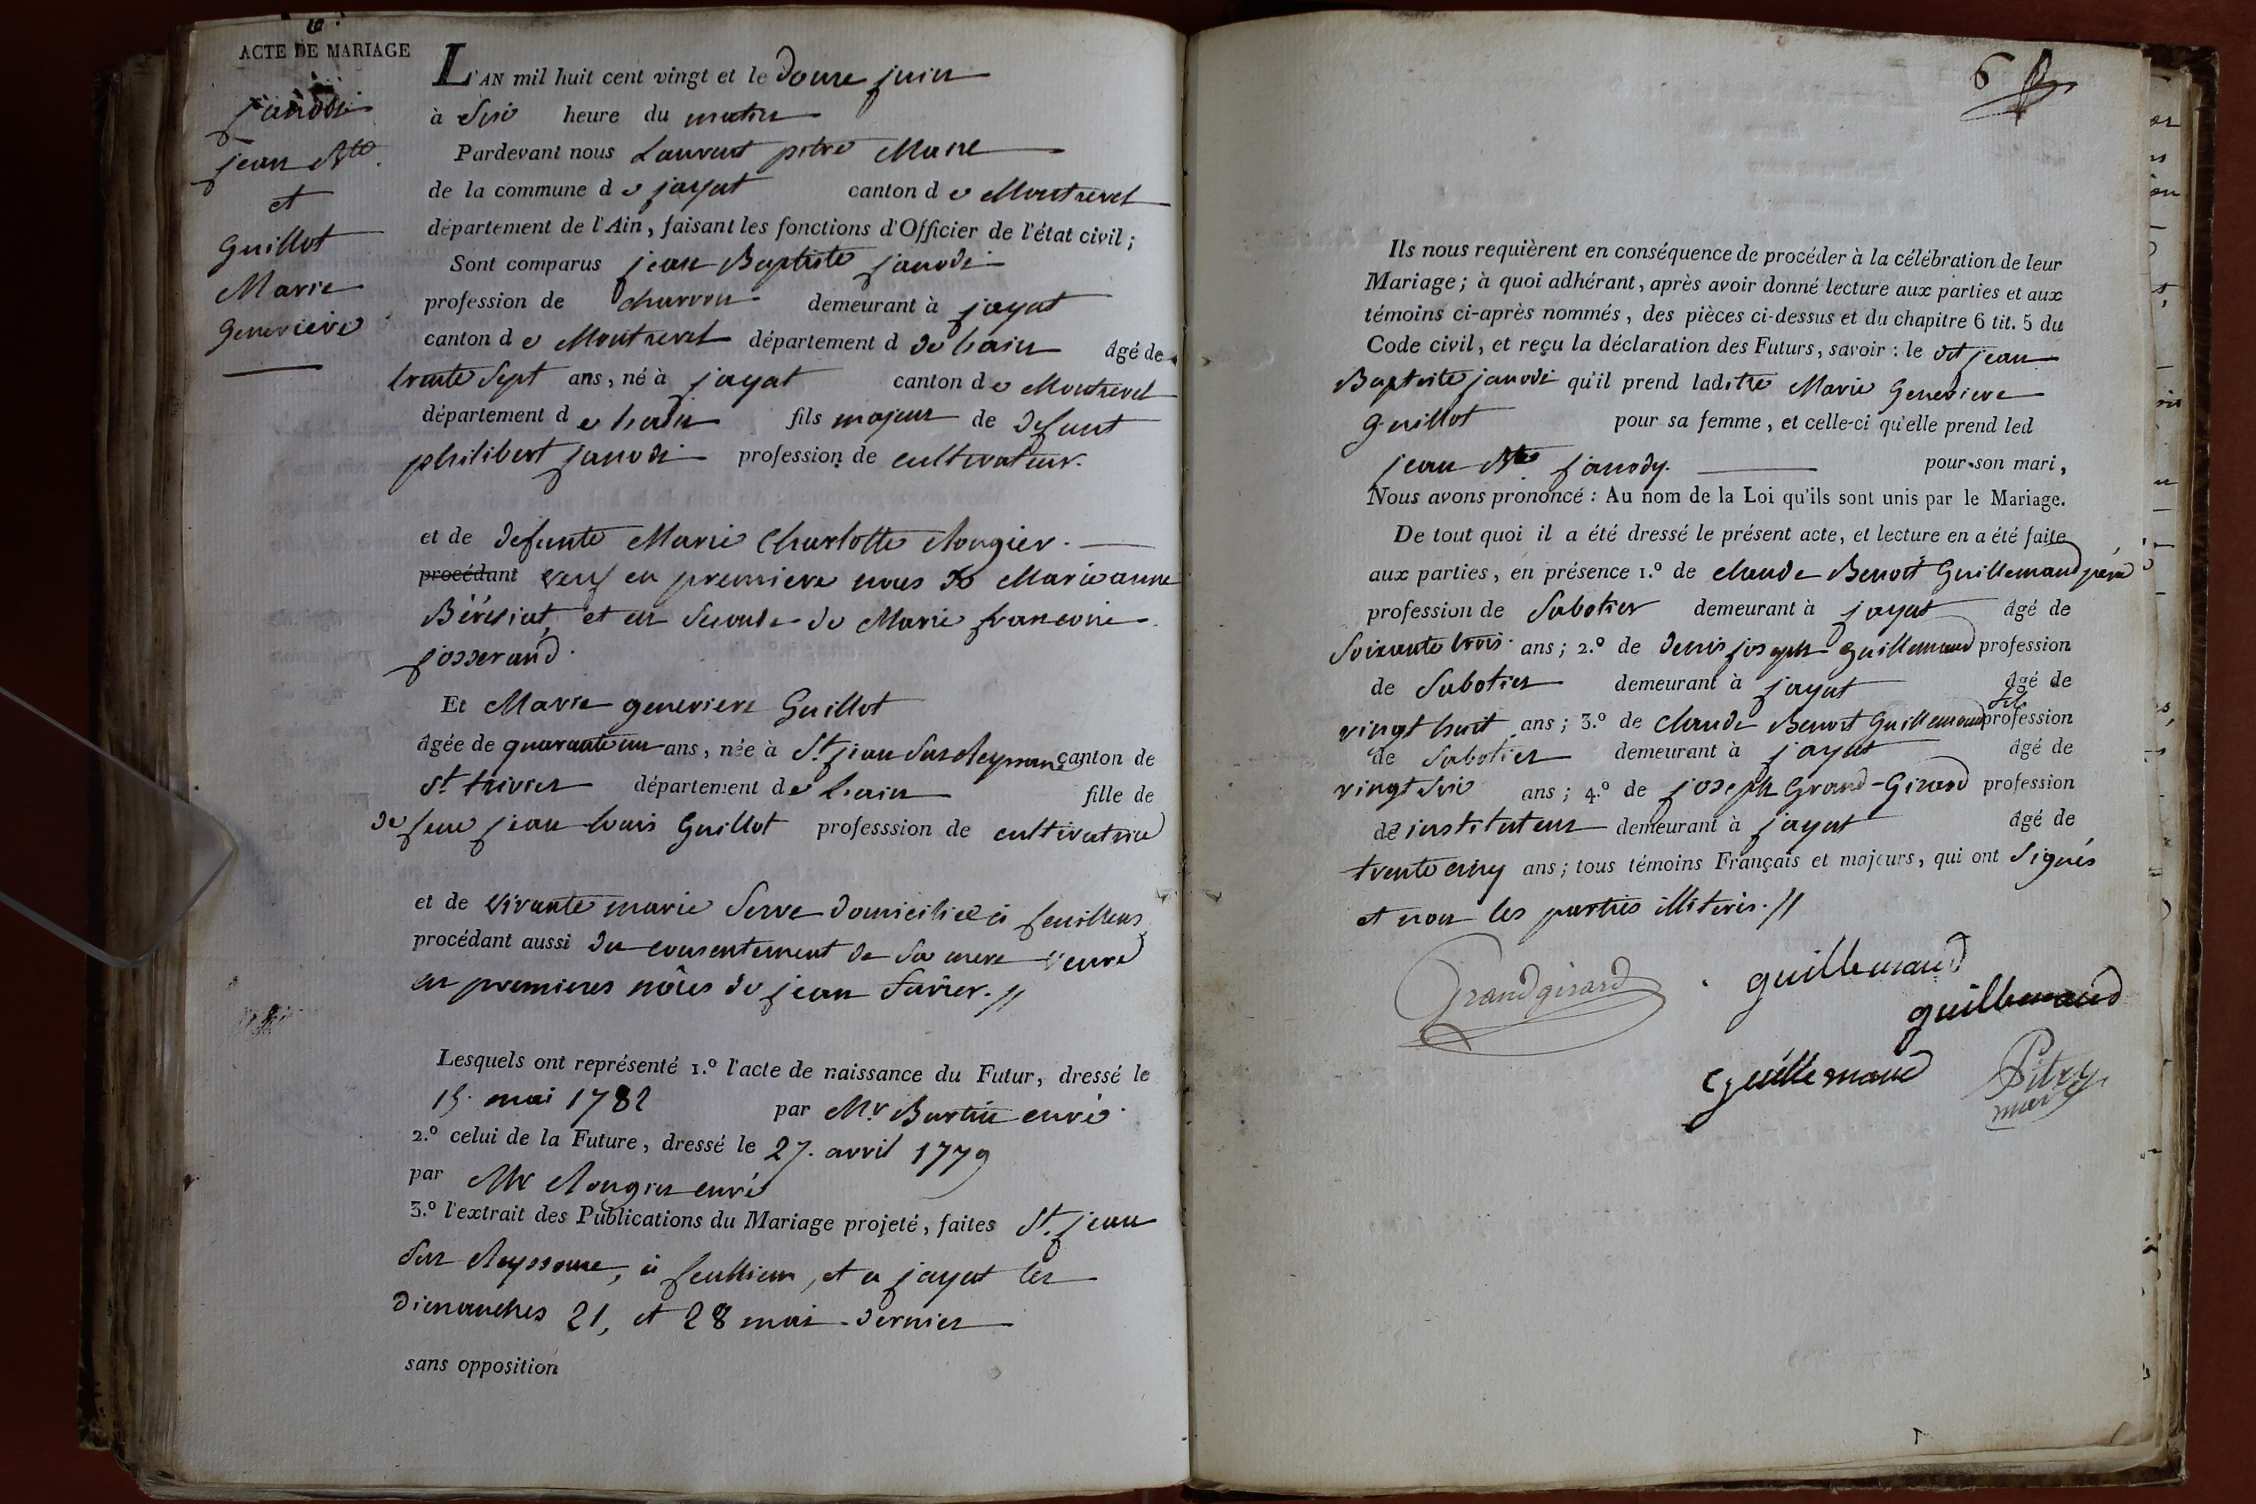 6.
ACTE DE MARIAGE
janodi
jean Bte.
et
Guillot
Marie
Genevieve
L'AN mil huit cent vingt et le douze juin
à Six heure du matin
Pardevant nous Laurent pitre Maire
de la commune de jayat canton de Montrevel
département de l'Ain, faisant les fonctions d'Officier de l'état civil;
Sont comparus jean Baptiste janodi
profession de charron demeurant à jayat
canton de Montrevel département d de l'ain âgé de
trente Sept ans, né à jayat canton de Montrevel
département de l'ain fils majeur de defunt
philibert janodi profession de cultivateur.
et de defunte Marie Charlotte Rongier.
procédant veuf en premiere noces de Marie anne
Béréziat, et en seconde de Marie francoise
josserand.
Et Marie genevieve Guillot
âgée de quarante un ans, née à St. jean Sur Reyssouze canton de
St. trivier département de l'ain fille de
de feue jean louis Guillot professsion de cultivatrice
et de vivante marie Serve domiciliée à feuillens
procédant aussi du consentement de Sa mere veuve
en premieres nôces de jean Favier. //
Lesquels ont représenté 1.º l'acte de naissance du Futur, dressé le
15. mai 1782 par Mr. Burtin curé.
2.º celui de la Future, dressé le 27. avril 1779
par Mr Rongier curé
3.º l'extrait des Publications du Mariage projeté, faites St. jean
Sur Reyssouze, à feullien, et a jayat les
dimanches 21, et 28 mai dernier
sans opposition
6
Ils nous requièrent en conséquence de procéder à la célébration de leur
Mariage; à quoi adhérant, après avoir donné lecture aux parties et aux
témoins ci-après nommés, des pièces ci-dessus et du chapitre 6 tit. 5 du
Code civil, et reçu la déclaration des Futurs, savoir: le dit jean
Baptiste janodi qu'il prend ladite Marie Genevieve
Guillot pour sa femme, et celle-ci qu'elle prend led
jean Bte janody. pour son mari,
Nous avons prononcé: Au nom de la Loi qu'ils sont unis par le Mariage.
De tout quoi il a été dressé le présent acte, et lecture en a été faite
aux parties, en présence 1.º de claude Benoit Guillemaud père
profession de Sabotier demeurant à jayat âgé de
Soixante trois ans; 2.º de denis joseph guillemaud profession
de Sabotier demeurant à jayat âgé de
vingt huit ans; 3.º de claude Benoit Guillemaud fils profession
de Sabotier demeurant à jayat âgé de
vingt Six ans; 4.º de joseph Grand-Girard profession
de instituteur demeurant à jayat âgé de
trente cinq ans; tous témoins Français et majeurs, qui ont signés
et non les parties illiteris. //
Grandgirard
guillemaud
guillemaud
Guillemaud
Pitre
maire